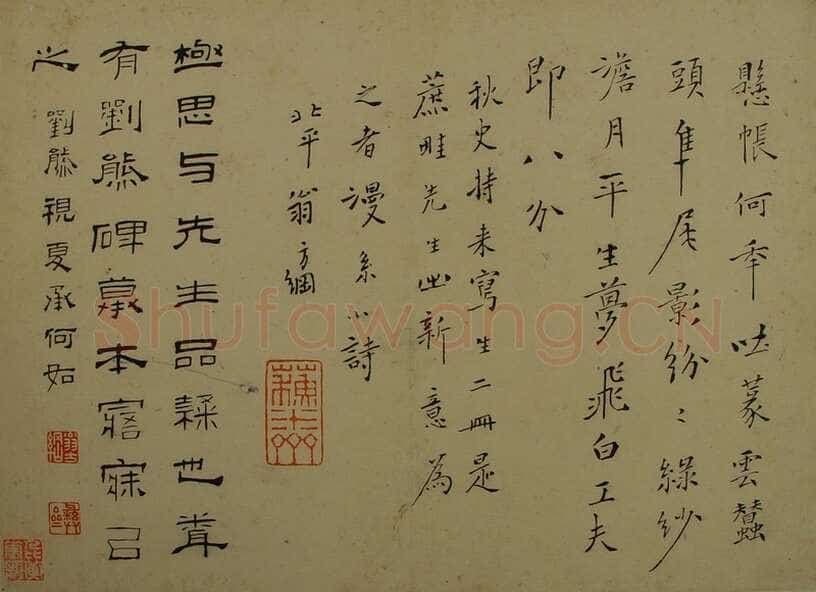 懸帳何秊吐篆雲蠶
頭隼尾影紛〻綠紗
澹月平生夢飛白工夫
即八分
秋史持來寫生二冊是
蔗畦先生出新意為
之者謾系小詩
北平翁方綱
極思与先生品隸也
有劉熊碑摹本寤寐㠯
之 劉熊視夏承何如
Shufawang.CN